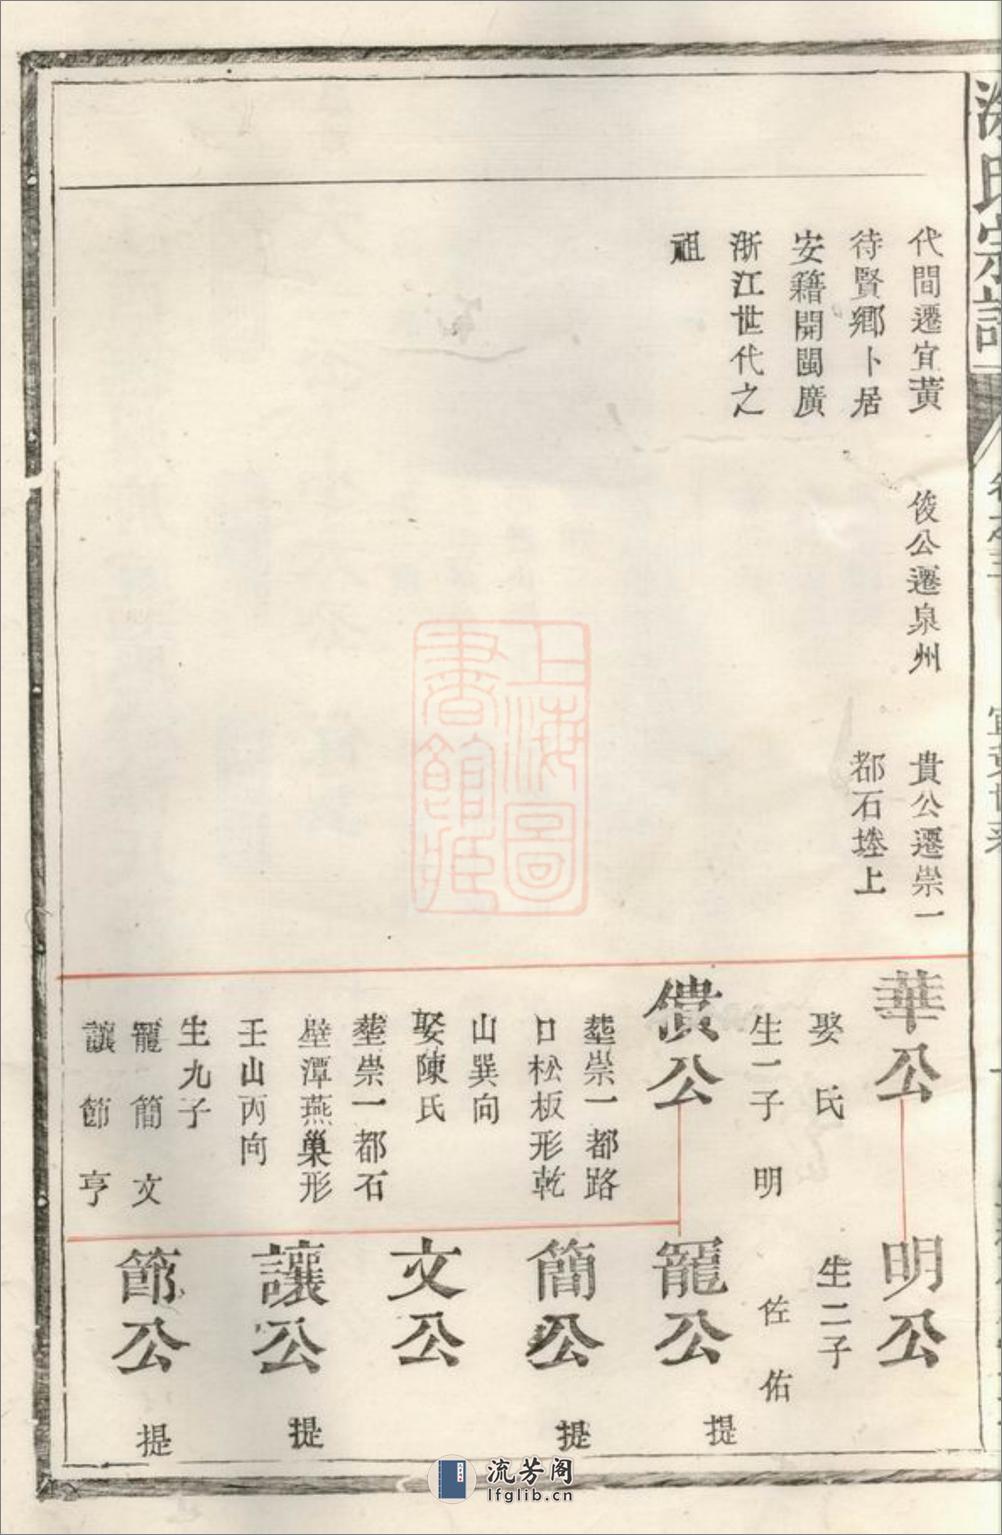 代間遷宜黃
待賢鄉卜居
安籍開閩廣
浙江世代之
祖
俊公遷泉州
貴公遷崇一
都石堘上
華公
娶 氏
生一子 明
儥公
塟崇一都路
口松板形乾
山巽向
娶陳氏
塟崇一都石
壁潭燕巢形
壬山丙向
生九子
寵 簡 文
讓 節 亨
明公
生二子
佐 佑
寵公
提
簡公
提
文公
讓公
提
節公
提
上海圖
書館藏
流芳阁
lfglib.cn